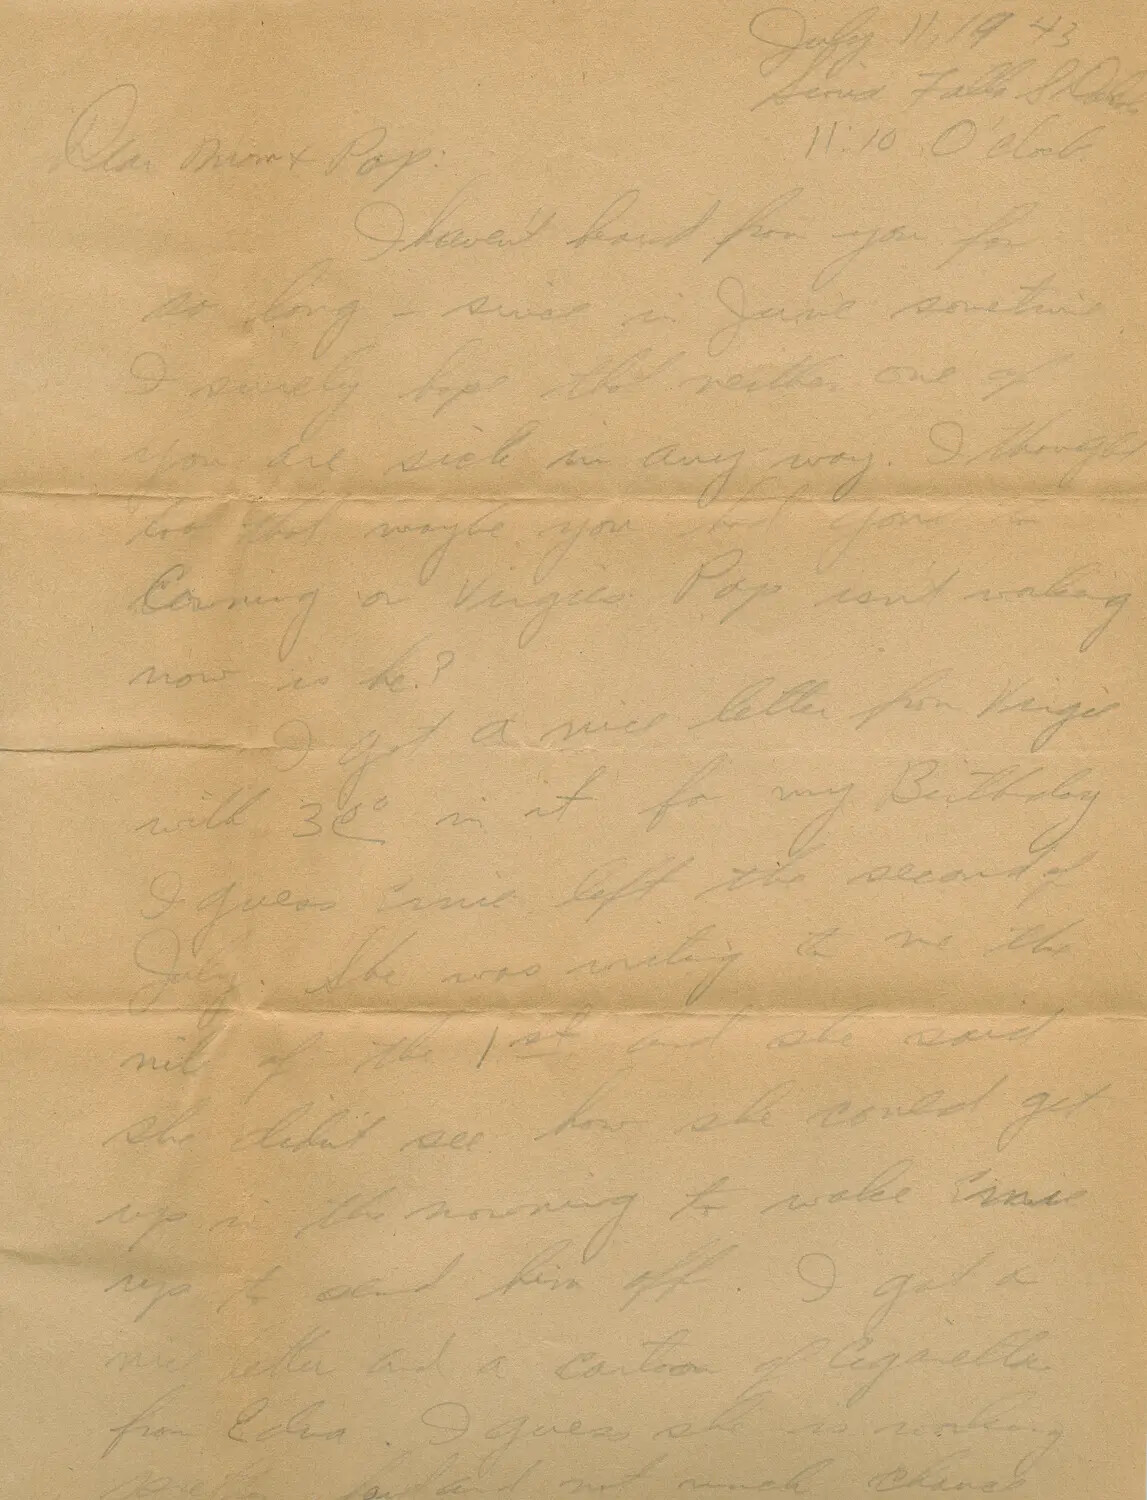 July 11, 1943
Sioux Falls S Dakota
11:10 O'clock
Dear Mom & Pop:
I haven't heard from you for
so long – since in June sometime
I surely hope that neither one of
you are sick in any way. I thought
too that maybe you had gone to
Corning or Virgies. Pop isn't working
now is he?
I got a nice letter from Virgie
with 3 in it for my Birthday
I guess Ernie left the second of
July. She was writing to me the
nite of the 1st and she said
she didn't see how she could get
up in the morning to wake Ernie
up to send him off. I got a
nice letter and a cartoon of Cigarettes
from Edna. I guess she is working
pretty hard and not much chance